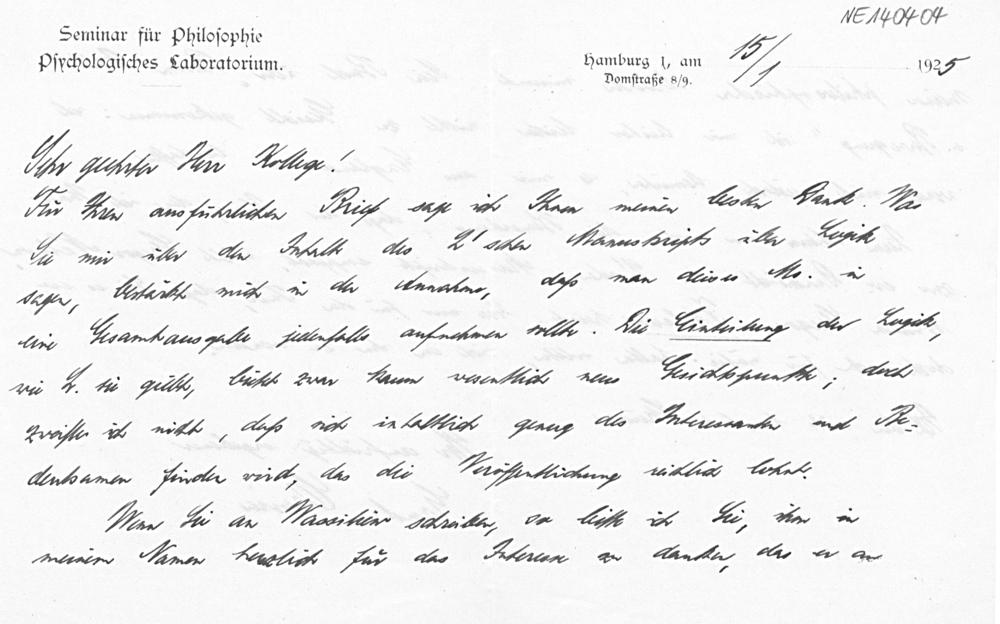 NE140404
Seminar für Philosophie
Psychologisches Laboratorium.
Hamburg 1, am 15/1 1925
Domstraße 8/9.
Sehr geehrter Herr Kollege!
Für Ihren ausführlichen Brief sage ich Ihnen meinen besten Dank. Was
Sie mir über den Inhalt des L'schen Manuskripts über Logik
sagen, bestärkt mich in der Annahme, daß man dieses Ms. in
eine Gesamtausgabe jedenfalls aufnehmen sollte. Die Einteilung der Logik,
wie L. sie giebt, bietet zwar kaum wesentlich neue Gesichtspunkte; doch
zweifle ich nicht, daß sich inhaltlich genug des Interessanten und Be-
deutsamen finden wird, das die Veröffentlichung reichlich lohnt.
Wenn Sie an schreiben, so bitte ich Sie, ihm in
meinem Namen herzlich für das Interesse zu danken, das er an